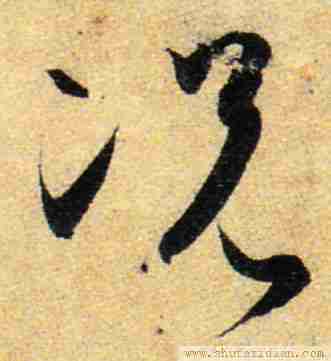 况
www.shufazidian.com